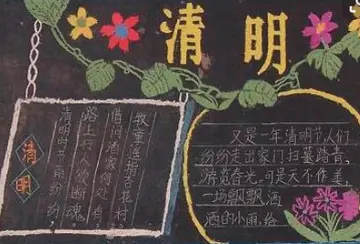 清明
清
明
清明时节雨纷纷
路上行人欲断魂
借问酒家何处有
牧童遥指杏花村
又是一年清明节人们
纷纷走出家门扫墓踏青,
游览春光。可是天不作美,
一场飘飘洒
洒的小雨,给